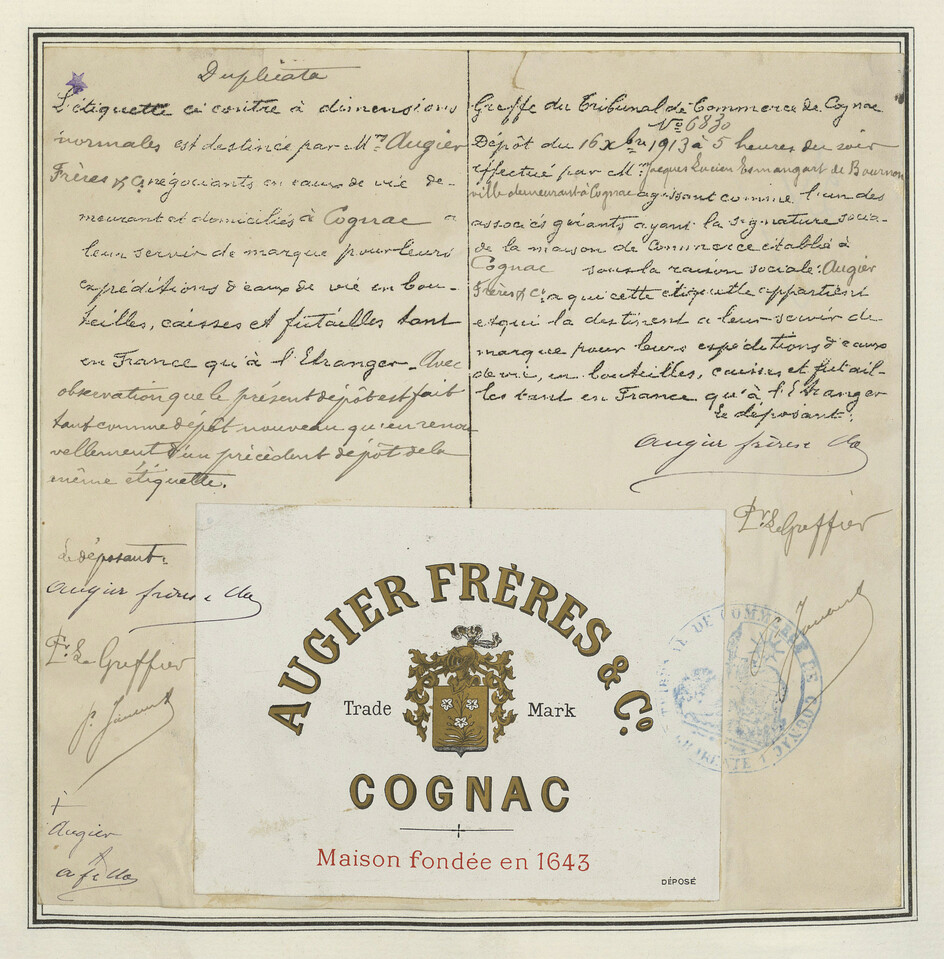 Duplicata
L'étiquette ci contre à dimensions
normales est destinée par M.rs Augier
Frères & Co négociants en eaux de vie de-
meurant et domiciliés à Cognac a
leur servir de marque pour leurs
expéditions d'eaux de vie en bou-
teilles, caisses et futailles tant
en France qu'à l'Etranger - Avec
observation que le présent dépôt est fait
tant comme dépôt nouveau qu'en renou
vellement d'un précédent dépôt de la
même étiquette.
Le déposant:
Augier frères & Co
Pr. Le Greffier
Greffe du Tribunal de Commerce de Cognac
No 6830
Dépôt du 16 Xbre 1913 à 5 heures du soir
effectué par M. Jacques Lucien Esmangart de Bournon
ville demeurant à Cognac agissant comme l'un des
associés gérants ayant la signature socia-
de la maison de Commerce établie à
Cognac sous la raison sociale: Augier
Frères & Co a qui cette étiquette appartient
et qui la destinent a leur servir de
marque pour leurs expéditions d'eaux
de vie, en bouteilles, caisses et futail-
les tant en France qu'à l'Etranger
Le déposant:
Augier frères & Co
Pr. Le Greffier
AUGIER FRÈRES & Co
Trade Mark
COGNAC
Maison fondée en 1643
DÉPOSÉ
DE COMMERCE DE COGNAC
Augier